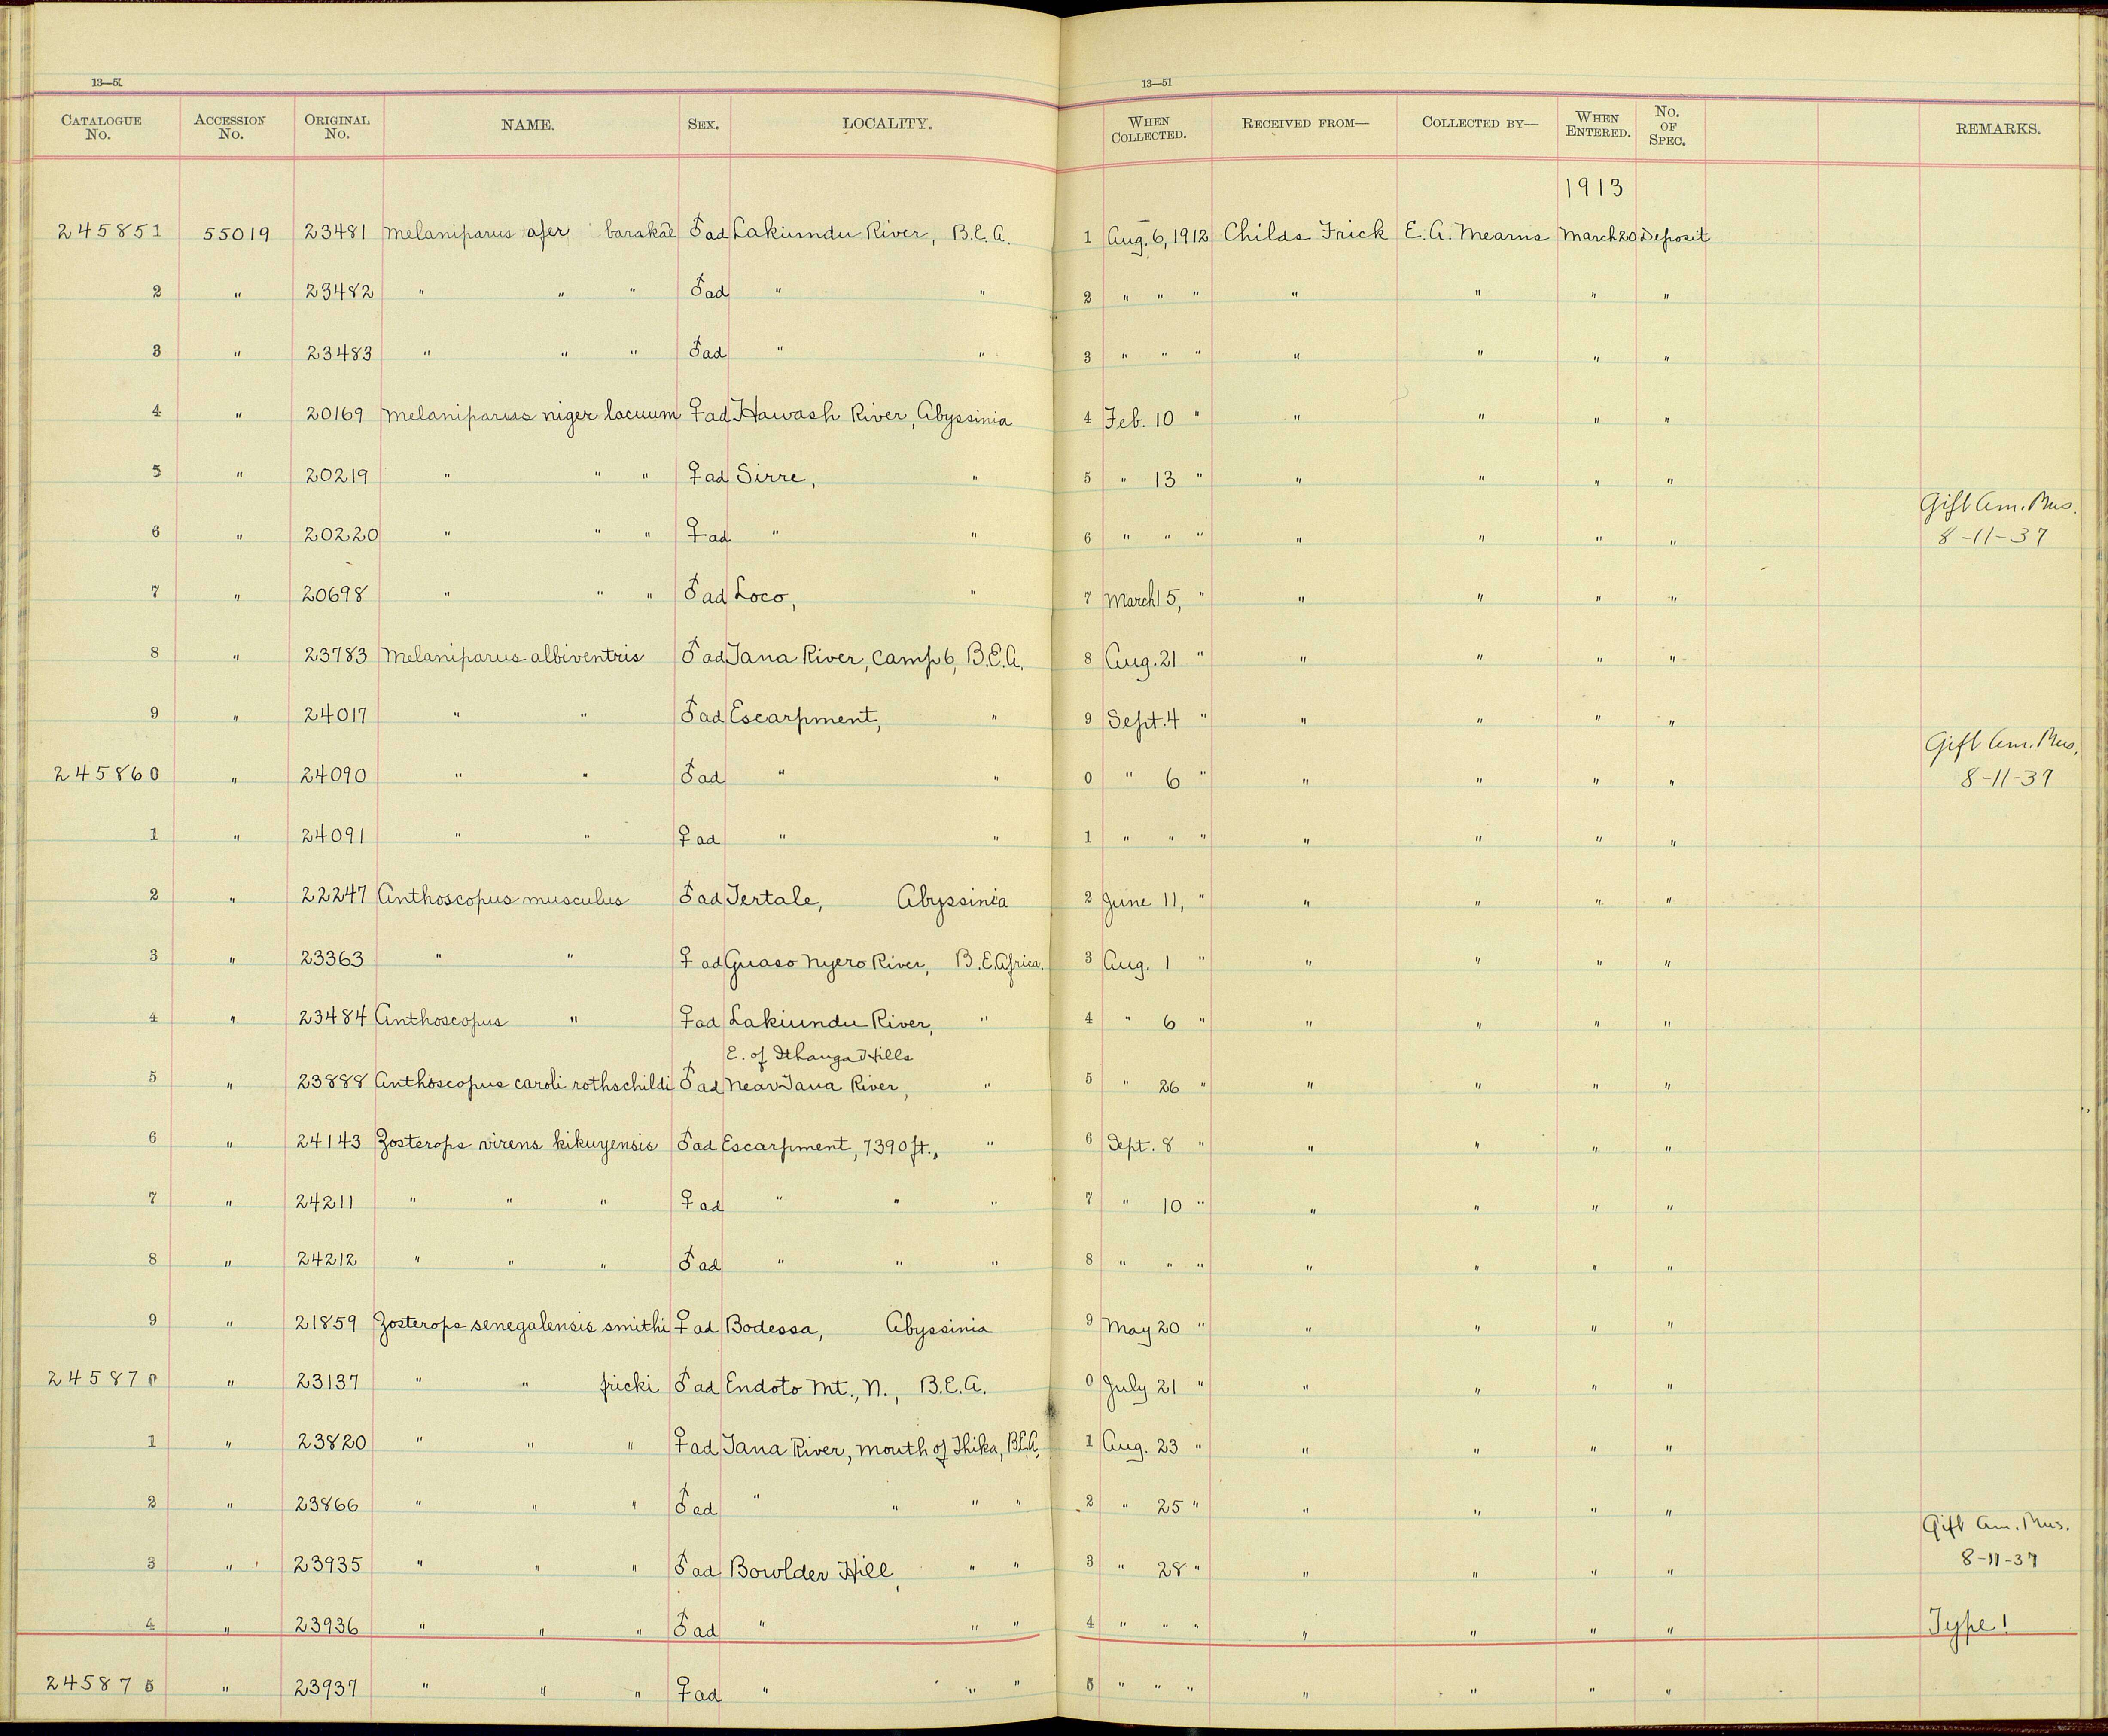 13—51
13—51
CATALOGUE No. ACCESSION No. ORIGINAL No. NAME. SEX. LOCALITY. WHEN COLLECTED. RECEIVED FROM— COLLECTED BY— WHEN ENTERED. No. OF SPEC. REMARKS.
1913
245851 55019 23481 Melaniparus afer barakae ♂ ad Lakiundu River, B.E.A. 1 Aug. 6, 1912 Childs Frick E. A. Mearns March 20 Deposit
2 " 23482 " " " ♂ ad " " 2 " " " " " " "
3 " 23483 " " " ♂ ad " " 3 " " " " " " "
4 " 20169 Melaniparus niger lacuum ♀ ad Hawash River, Abyssinia 4 Feb. 10 " " " " "
5 " 20219 " " " ♀ ad Sirre, " 5 " 13 " " " " "
Gift Am. Mus.
6 " 20220 " " " ♀ ad " " 6 " " " " " " " 8-11-37
7 " 20698 " " " ♂ ad Loco, " 7 March 15, " " " " "
8 " 23783 Melaniparus albiventris ♂ ad Tana River, Camp 6, B.E.A. 8 Aug. 21 " " " " "
9 " 24017 " " ♂ ad Escarpment, " 9 Sept. 4 " " " " "
Gift Am. Mus.
245860 " 24090 " " ♂ ad " " 0 " 6 " " " " " 8-11-37
1 " 24091 " " ♀ ad " " 1 " " " " " " "
2 " 22247 Anthoscopus musculus ♂ ad Tertale, Abyssinia 2 June 11, " " " " "
3 " 23363 " " ♀ ad Guaso Nyero River, B.E. Africa. 3 Aug. 1 " " " " "
4 " 23484 Anthoscopus " ♀ ad Lakiundu River, " 4 " 6 " " " " "
E. of Ithanga Hills
5 " 23888 Anthoscopus caroli rothschildi ♂ ad Near Tana River, " 5 " 26 " " " " "
6 " 24143 Zosterops virens kikuyensis ♂ ad Escarpment, 7390 ft., " 6 Sept. 8 " " " " "
7 " 24211 " " " ♀ ad " " " 7 " 10 " " " " "
8 " 24212 " " " ♂ ad " " " 8 " " " " " " "
9 " 21859 Zosterops senegalensis smithi ♀ ad Bodessa, Abyssinia 9 May 20 " " " " "
245870 " 23137 " " fricki ♂ ad Endoto Mt., N., B.E.A. 0 July 21 " " " " "
1 " 23820 " " " ♀ ad Tana River, mouth of Thika, B.E.A. 1 Aug. 23 " " " " "
2 " 23866 " " " ♂ ad " " " " 2 " 25 " " " " "
Gift Am. Mus.
3 " 23935 " " " ♂ ad Bowlder Hill, " " 3 " 28 " " " " " 8-11-37
4 " 23936 " " " ♂ ad " " " 4 " " " " " " " Type!
245875 " 23937 " " " ♀ ad " " " 5 " " " " " " "